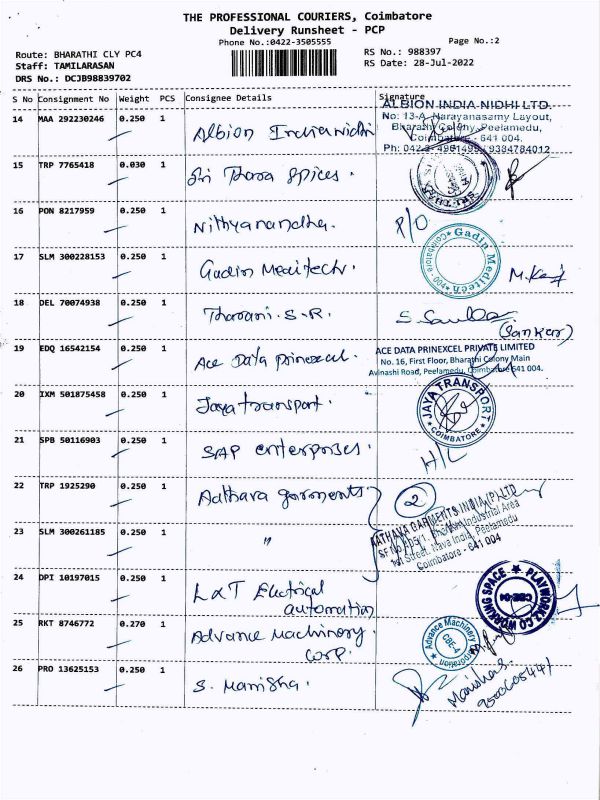 THE PROFESSIONAL COURIERS, Coimbatore
Delivery Runsheet - PCP
Phone No.:0422-3505555
Page No.:2
Route: BHARATHI CLY PC4
Staff: TAMILARASAN
DRS No.: DCJB98839702
RS No.: 988397
RS Date: 28-Jul-2022
S No Consignment No Weight PCS Consignee Details Signature
14 MAA 292230246 0.250 1 Albion Indianidhi
ALBION INDIA NIDHI LTD.
No: 13-A, Narayanasamy Layout,
Bharathi Colony, Peelamedu,
Coimbatore - 641 004.
Ph: 0422- 4961495 / 9384784012
15 TRP 7765418 0.030 1 Sri Thara Spices.
16 PON 8217959 0.250 1 Nithyanandha. P/O
17 SLM 300228153 0.250 1 Gadin Meditech.
Gadin Meditech
Coimbatore
M.
18 DEL 70074938 0.250 1 Tharani. S.R.
S.
(Sankar)
19 EDQ 16542154 0.250 1 Ace Data prinexcel.
ACE DATA PRINEXCEL PRIVATE LIMITED
No. 16, First Floor, Bharathi Colony Main
Avinashi Road, Peelamedu, Coimbatore 641 004.
20 IXM 501875458 0.250 1 Jaya transport.
JAYA TRANSPORT
COIMBATORE
21 SPB 50116903 0.250 1 SAP enterprises. H/L
22 TRP 1925290 0.250 1 Aathava garments 2
AATHAVA GARMENTS INDIA (P) LTD
Industrial Area
1st Street, Nava India, Peelamedu
Coimbatore - 641 004
23 SLM 300261185 0.250 1 "
24 DPI 10197015 0.250 1 L&T Electrical
automation
PLAYWORKZ CO WORKING SPACE
CBE-04
25 RKT 8746772 0.270 1 Advance Machinery
Corp.
Advance Machinery
CBE-4
26 PRO 13625153 0.250 1 S. Manisha.
Manisha S.